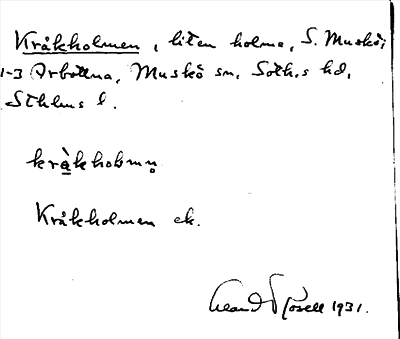 Kråkholmen, liten holme, S. Muskö,
1-3 Arbottna, Muskö sn, Soth.s hd,
Sthlms l.
kràkhobmn̥
Kråkholmen ek.
Rosell 1931.